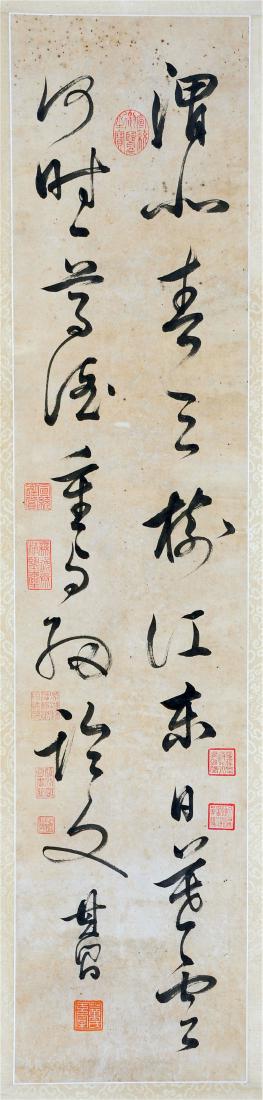 渭北春天樹江東日暮雲
何時一尊酒重與細論文其昌